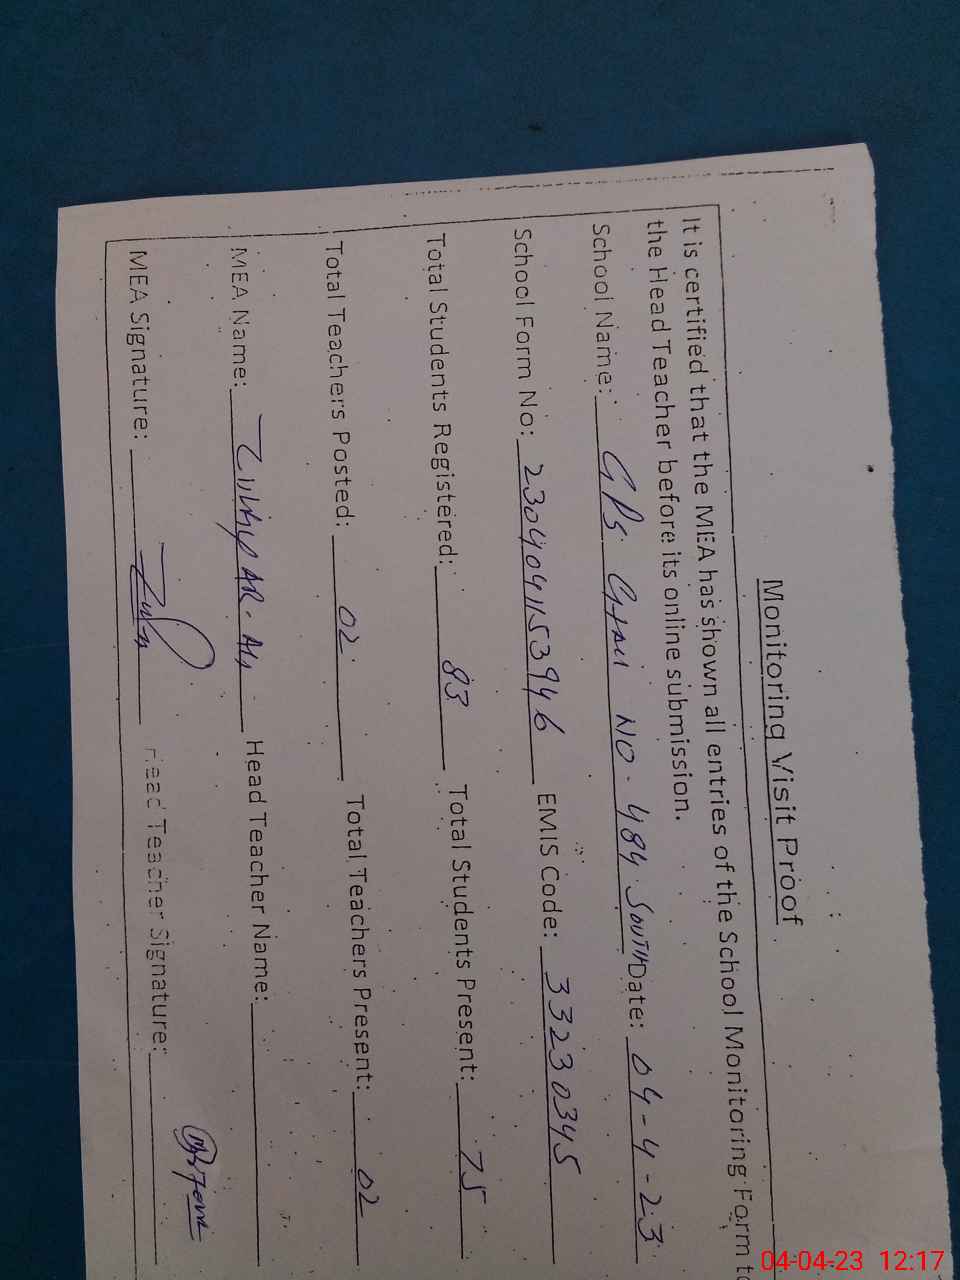 Monitoring Visit Proof
It is certified that the MEA has shown all entries of the School Monitoring Form to
the Head Teacher before its online submission.
School Name: GPS NO. 484 SOUTH Date: 04-4-23
School Form No: 2304041153946 EMIS Code: 33230345
Total Students Registered: 83 Total Students Present: 75
Total Teachers Posted: 02 Total Teachers Present: 02
MEA Name: Head Teacher Name:
MEA Signature: Head Teacher Signature:
04-04-23 12:17